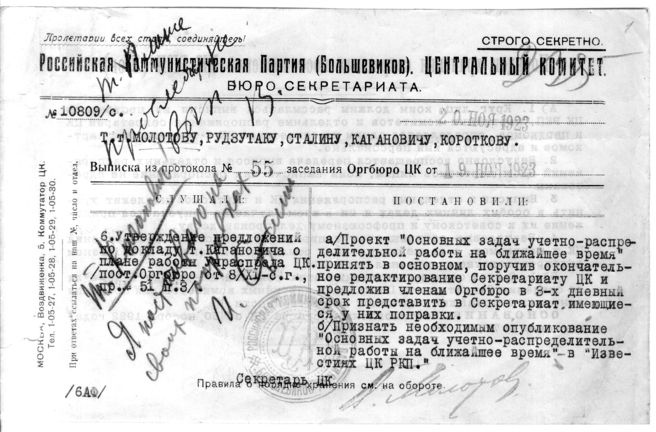 Пролетарии всех стран, соединяйтесь!
СТРОГО СЕКРЕТНО.
Российская Коммунистическая Партия (Большевиков). ЦЕНТРАЛЬНЫЙ КОМИТЕТ.
БЮРО СЕКРЕТАРИАТА.
№ 10809/с.
20 НОЯ 1923
Т.т. МОЛОТОВУ, РУДЗУТАКУ, СТАЛИНУ, КАГАНОВИЧУ, КОРОТКОВУ.
Выписка из протокола № 55 заседания Оргбюро ЦК от 19 НОЯ 1923
СЛУШАЛИ:
ПОСТАНОВИЛИ:
6. Утверждение предложений
по докладу т. Кагановича о
плане работы Учраспреда ЦК.
пост. Оргбюро от 8/XI-
пр. № 51 п. 8/
а/Проект "Основных задач учетно-распре-
делительной работы на ближайшее время"
принять в основном, поручив окончатель-
ное редактирование Секретариату ЦК и
предложив членам Оргбюро в 3-х дневный
срок представить в Секретариат, имеющие-
ся у них поправки.
б/Признать необходимым опубликование
"Основных задач учетно-распределитель-
ной работы на ближайшее время" в "Извес-
тиях ЦК РКП".
Секретарь ЦК
Правила о порядке хранения см. на обороте.
/6АФ/
МОСКВА, Воздвиженка, 5, Коммутатор ЦК.
Тел. 1-05-27, 1-05-28, 1-05-29, 1-05-30.
При ответах ссылаться на наш №, число и отдел.
Я настаиваю на
своих поправках
И. Сталин
В. Молотов